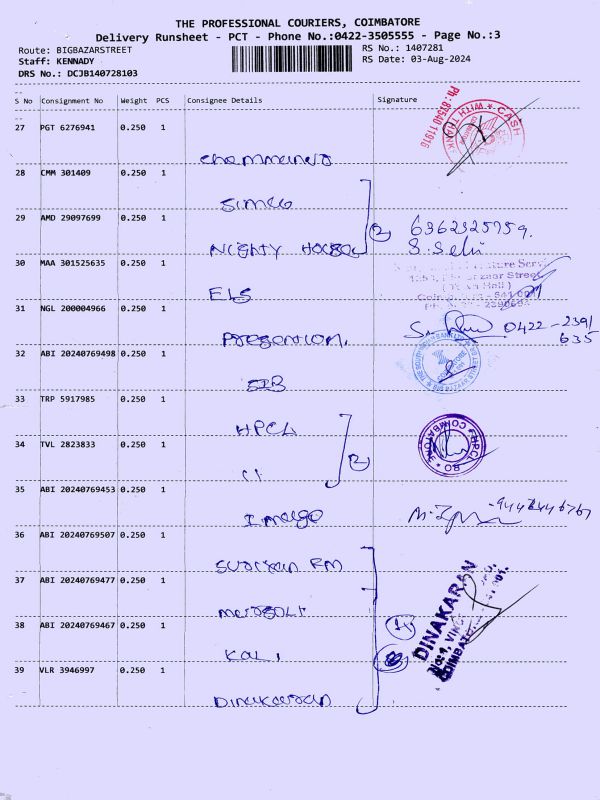 THE PROFESSIONAL COURIERS, COIMBATORE
Delivery Runsheet - PCT - Phone No.:0422-3505555 - Page No.:3
Route: BIGBAZARSTREET RS No.: 1407281
Staff: KENNADY RS Date: 03-Aug-2024
DRS No.: DCJB140728103
S No Consignment No Weight PCS Consignee Details Signature
Ph : 87540 11916
CASH
WITH THANK
27 PGT 6276941 0.250 1
28 CMM 301409 0.250 1
Simco
29 AMD 29097699 0.250 1
6362325759.
Nighty House
2
S. Selvi
30 MAA 301525635 0.250 1
ELS
31 NGL 200004966 0.250 1
Precision.
0422-2391
635
32 ABI 20240769498 0.250 1
SIB
THE SOUTH INDIAN BANK LTD
COIMBATORE
BIG BAZAR STREET
33 TRP 5917985 0.250 1
HPCL
34 TVL 2823833 0.250 1
2
HPCL
COIMBATORE
RO
35 ABI 20240769453 0.250 1
Imago
36 ABI 20240769507 0.250 1
Suriyan FM
37 ABI 20240769477 0.250 1
DINAKARAN
38 ABI 20240769467 0.250 1
4
KAL
39 VLR 3946997 0.250 1
Dinakaran